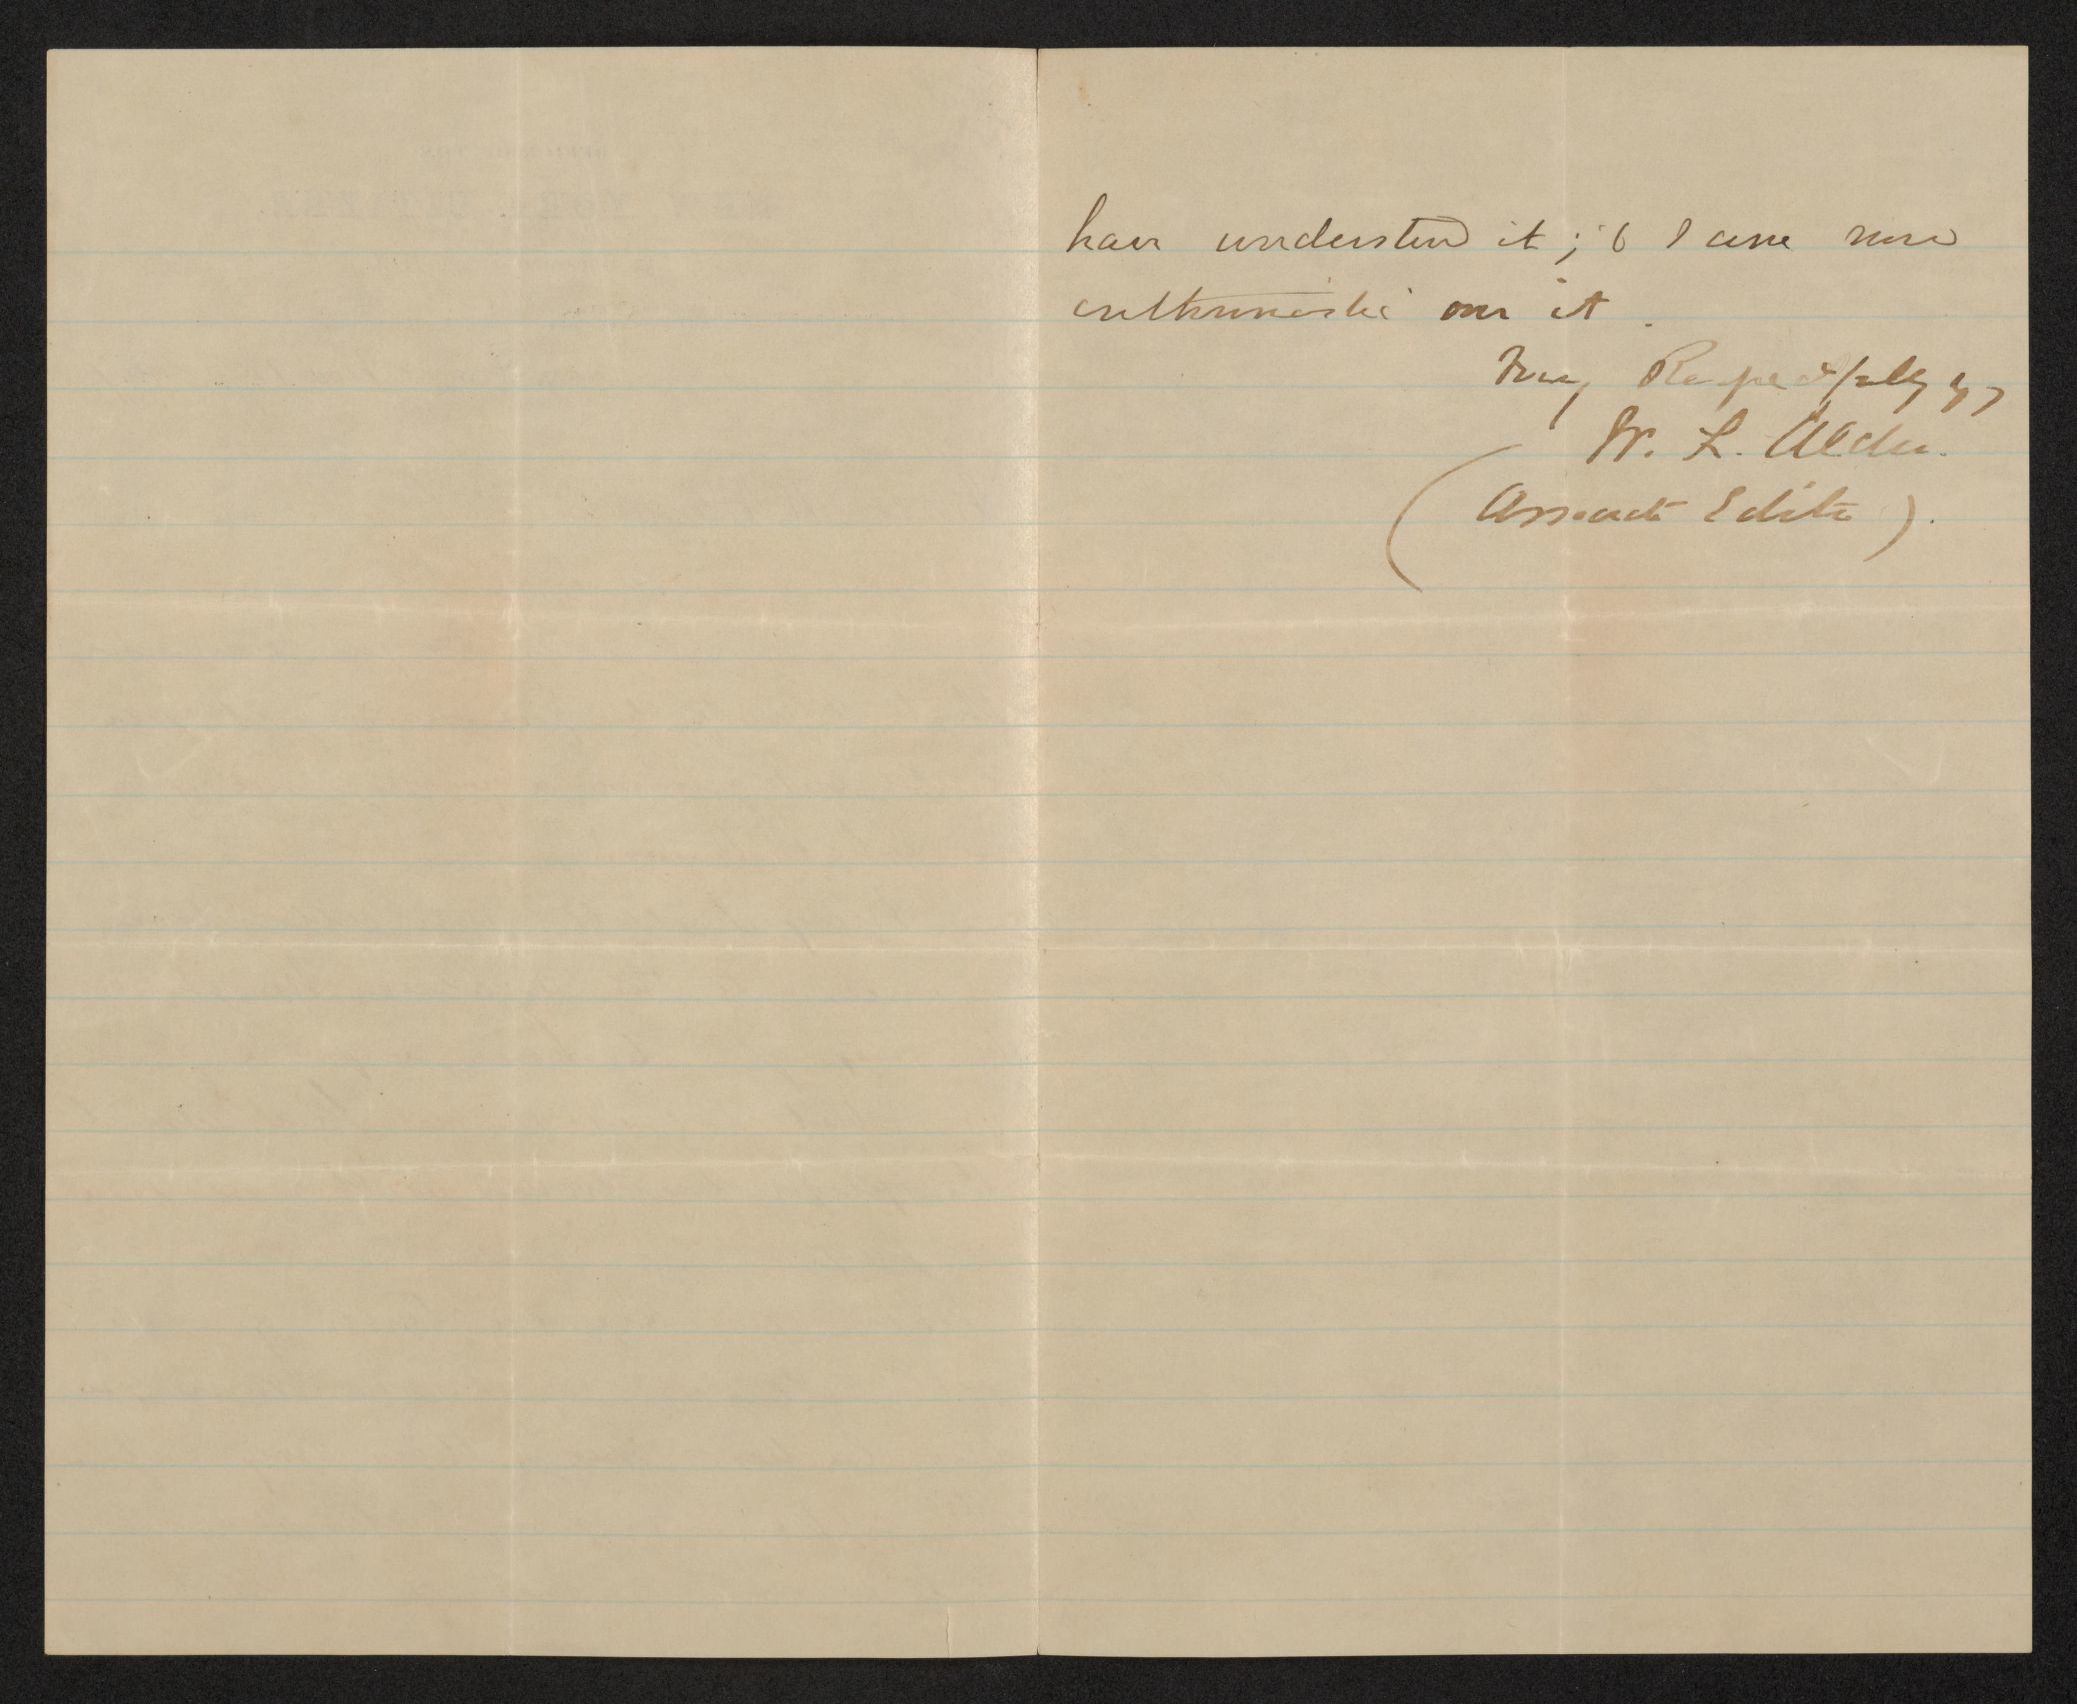 have understood it; & I am now
enthusiastic over it.
Very Respectfully yrs
W. L. Alden.
(Associate Editor).